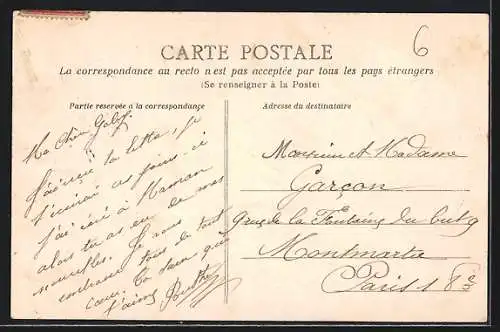 6
CARTE POSTALE
La correspondance au recto n'est pas acceptée par tous les pays étrangers
(Se renseigner à la Poste)
Partie reservée a la correspondance
Adresse du destinataire
Ma Chère
J'ai reçu ta lettre, je
t'écrirai ces jours-ci
j'ai écrit à Maman
alors tu as eu de mes
nouvelles. Je vous
embrasse tous de tout
cœur. Ta sœur qui
t'aime
Monsieur et Madame
Garçon
9 rue de la Fontaine du But 9
Montmartre
Paris 18e